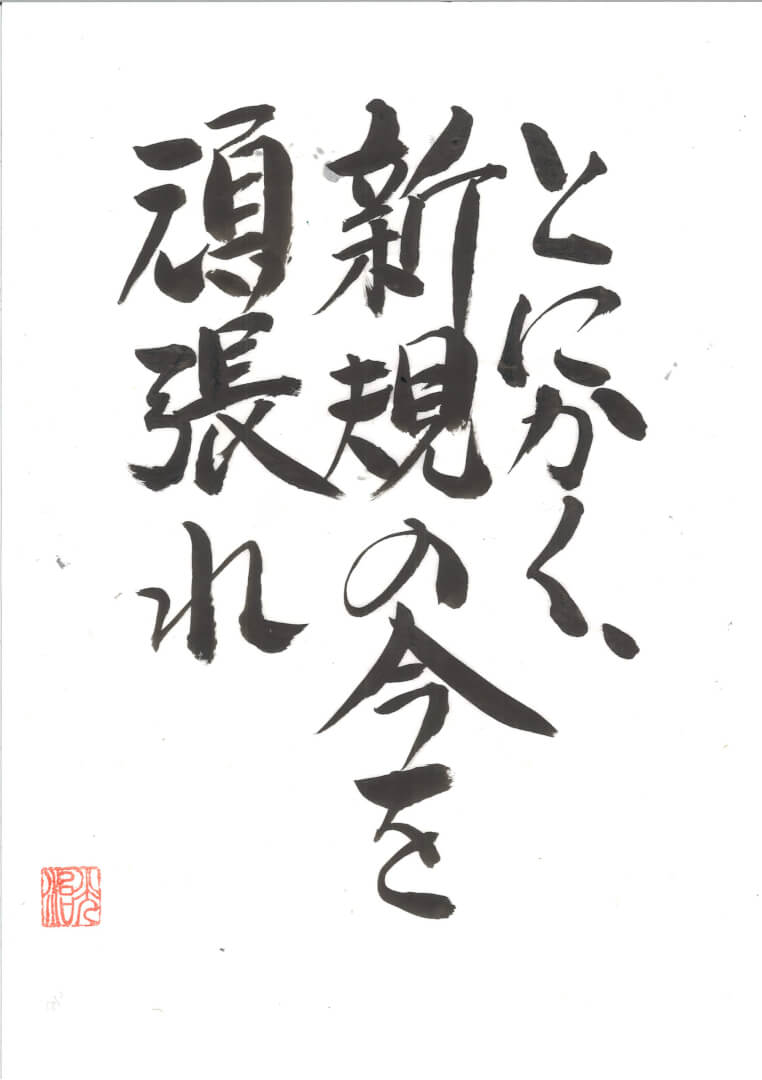 とにかく、
新規の今を
頑張れ